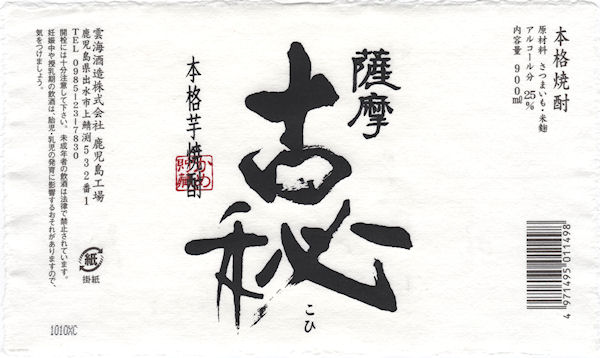 本格焼酎
原材料 さつまいも・米麹
アルコール分 25%
内容量 900ml
薩摩
古秘
こひ
本格芋焼酎
かめ
貯蔵
雲海酒造株式会社 鹿児島工場
鹿児島県出水市上鯖渕532番1
TEL 0985-23-7830
開栓には十分注意して下さい。未成年者の飲酒は法律で禁止されています。
妊娠中や授乳期の飲酒は、胎児・乳児の発育に影響するおそれがありますので、
気をつけましょう。
紙
掛紙
1010XC
4 971495 011498